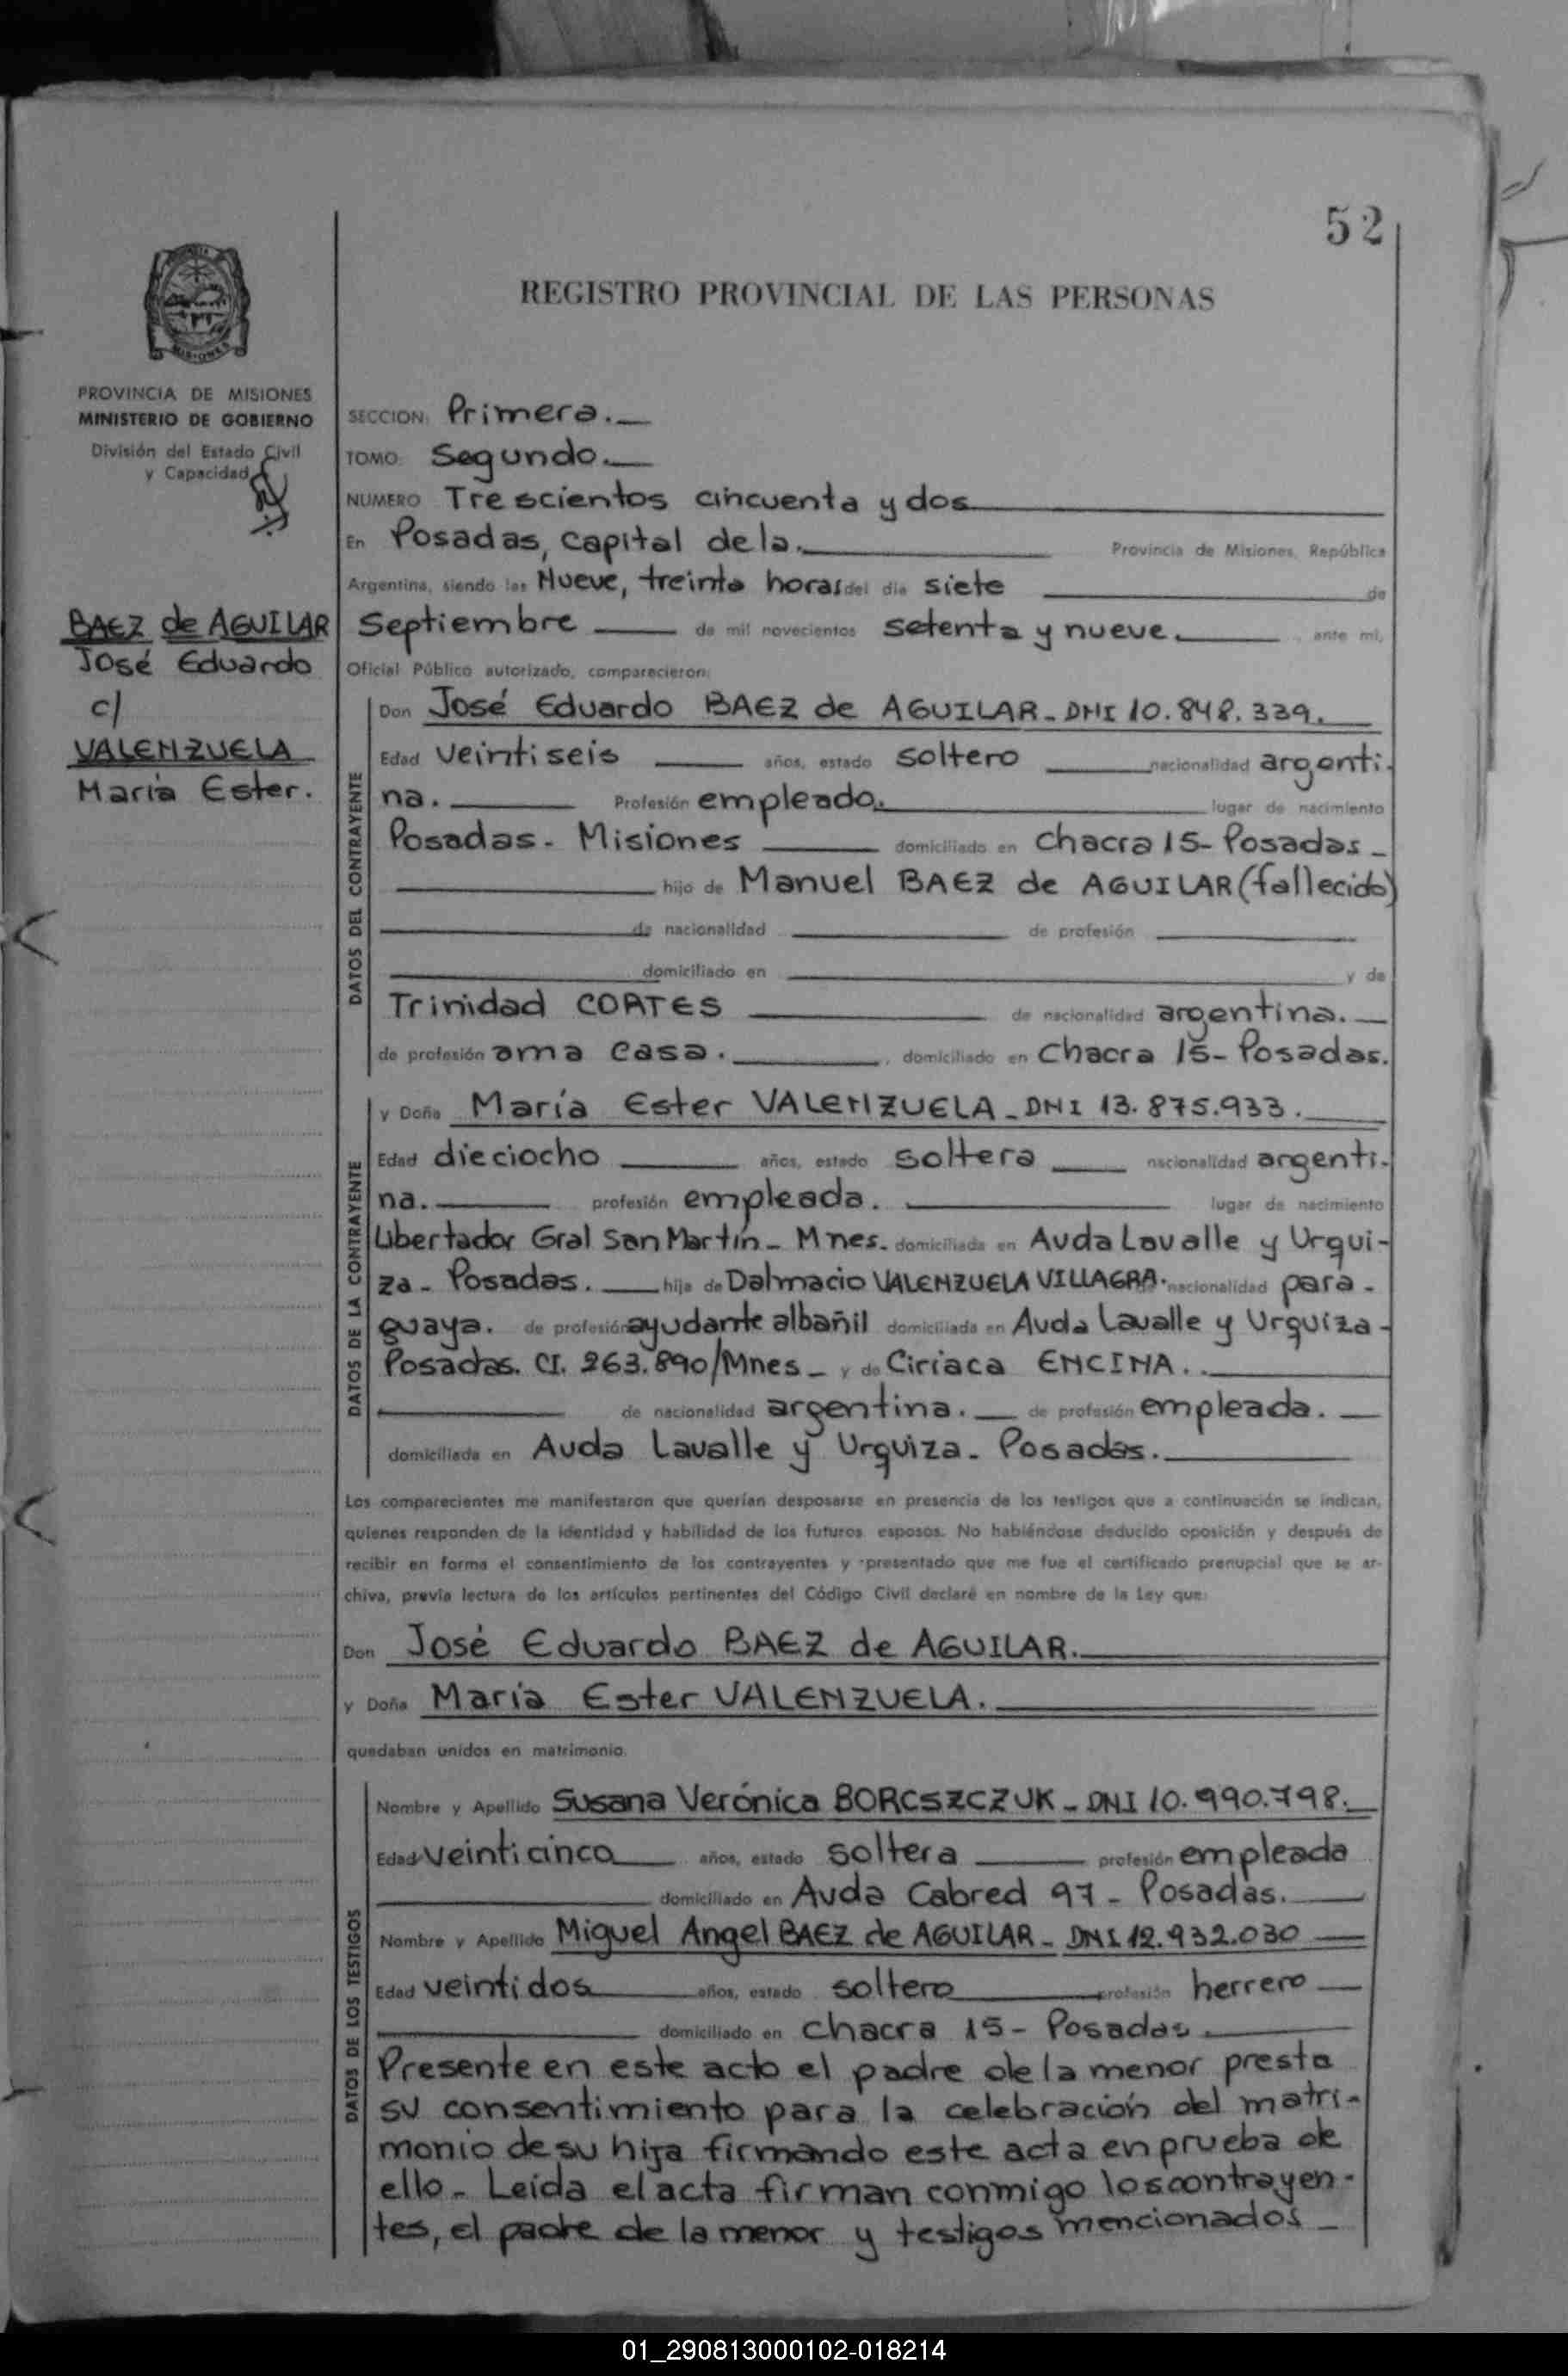 52
REGISTRO PROVINCIAL DE LAS PERSONAS
PROVINCIA DE MISIONES
MINISTERIO DE GOBIERNO
División del Estado Civil
y Capacidad
BAEZ de AGUILAR
José Eduardo
c/
VALENZUELA
María Ester.
SECCION: Primera.
TOMO: Segundo.
NUMERO Trescientos cincuenta y dos
En Posadas, capital de la. Provincia de Misiones, República
Argentina, siendo las Nueve, treinta horas del día siete de
Septiembre de mil novecientos setenta y nueve. , ante mí,
Oficial Público autorizado, comparecieron:
DATOS DEL CONTRAYENTE
Don José Eduardo BAEZ de AGUILAR - DNI 10.848.339.
Edad veintiseis años, estado soltero nacionalidad argenti-
na. Profesión empleado. lugar de nacimiento
Posadas - Misiones domiciliado en Chacra 15 - Posadas -
hijo de Manuel BAEZ de AGUILAR (fallecido)
de nacionalidad de profesión
domiciliado en y de
Trinidad CORTES de nacionalidad argentina.
de profesión ama casa. , domiciliado en Chacra 15 - Posadas.
DATOS DE LA CONTRAYENTE
y Doña María Ester VALENZUELA - DNI 13.875.933.
Edad dieciocho años, estado soltera nacionalidad argenti-
na. profesión empleada. lugar de nacimiento
Libertador Gral San Martín - Mnes. domiciliada en Avda Lavalle y Urqui-
za - Posadas. hija de Dalmacio VALENZUELA VILLAGRA. nacionalidad para-
guaya. de profesión ayudante albañil domiciliada en Avda Lavalle y Urquiza -
Posadas. CI. 263.890/Mnes - y de Ciriaca ENCINA.
de nacionalidad argentina. de profesión empleada.
domiciliada en Avda Lavalle y Urquiza - Posadas.
Los comparecientes me manifestaron que querían desposarse en presencia de los testigos que a continuación se indican,
quienes responden de la identidad y habilidad de los futuros esposos. No habiéndose deducido oposición y después de
recibir en forma el consentimiento de los contrayentes y presentado que me fue el certificado prenupcial que se ar-
chiva, previa lectura de los artículos pertinentes del Código Civil declaré en nombre de la Ley que:
Don José Eduardo BAEZ de AGUILAR.
y Doña María Ester VALENZUELA.
quedaban unidos en matrimonio.
DATOS DE LOS TESTIGOS
Nombre y Apellido Susana Verónica BORCSZCZUK - DNI 10.990.798.
Edad veinticinco años, estado soltera profesión empleada
domiciliado en Avda Cabred 97 - Posadas.
Nombre y Apellido Miguel Angel BAEZ de AGUILAR - DNI 12.932.030
Edad veintidos años, estado soltero profesión herrero
domiciliado en chacra 15 - Posadas.
Presente en este acto el padre de la menor presta
su consentimiento para la celebración del matri-
monio de su hija firmando este acta en prueba de
ello - Leída el acta firman conmigo los contrayen-
tes, el padre de la menor y testigos mencionados -
01_290813000102-018214